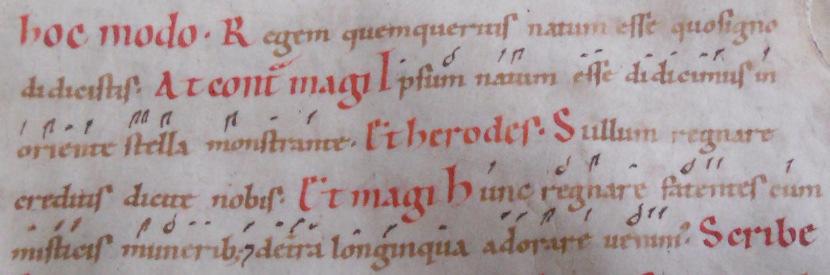 hoc modo. Regem quemqueritis natum esse quosigno
didicistis. At cont̄ magi Ipsum natum esse didicimus in
oriente stella monstrante. Et herodes. Si illum regnare
creditis dicite nobis. Et magi hunc regnare fatentes cum
misticis munerib; ⁊ de tr̄a longinqua adorare uenim᷒. Scribe